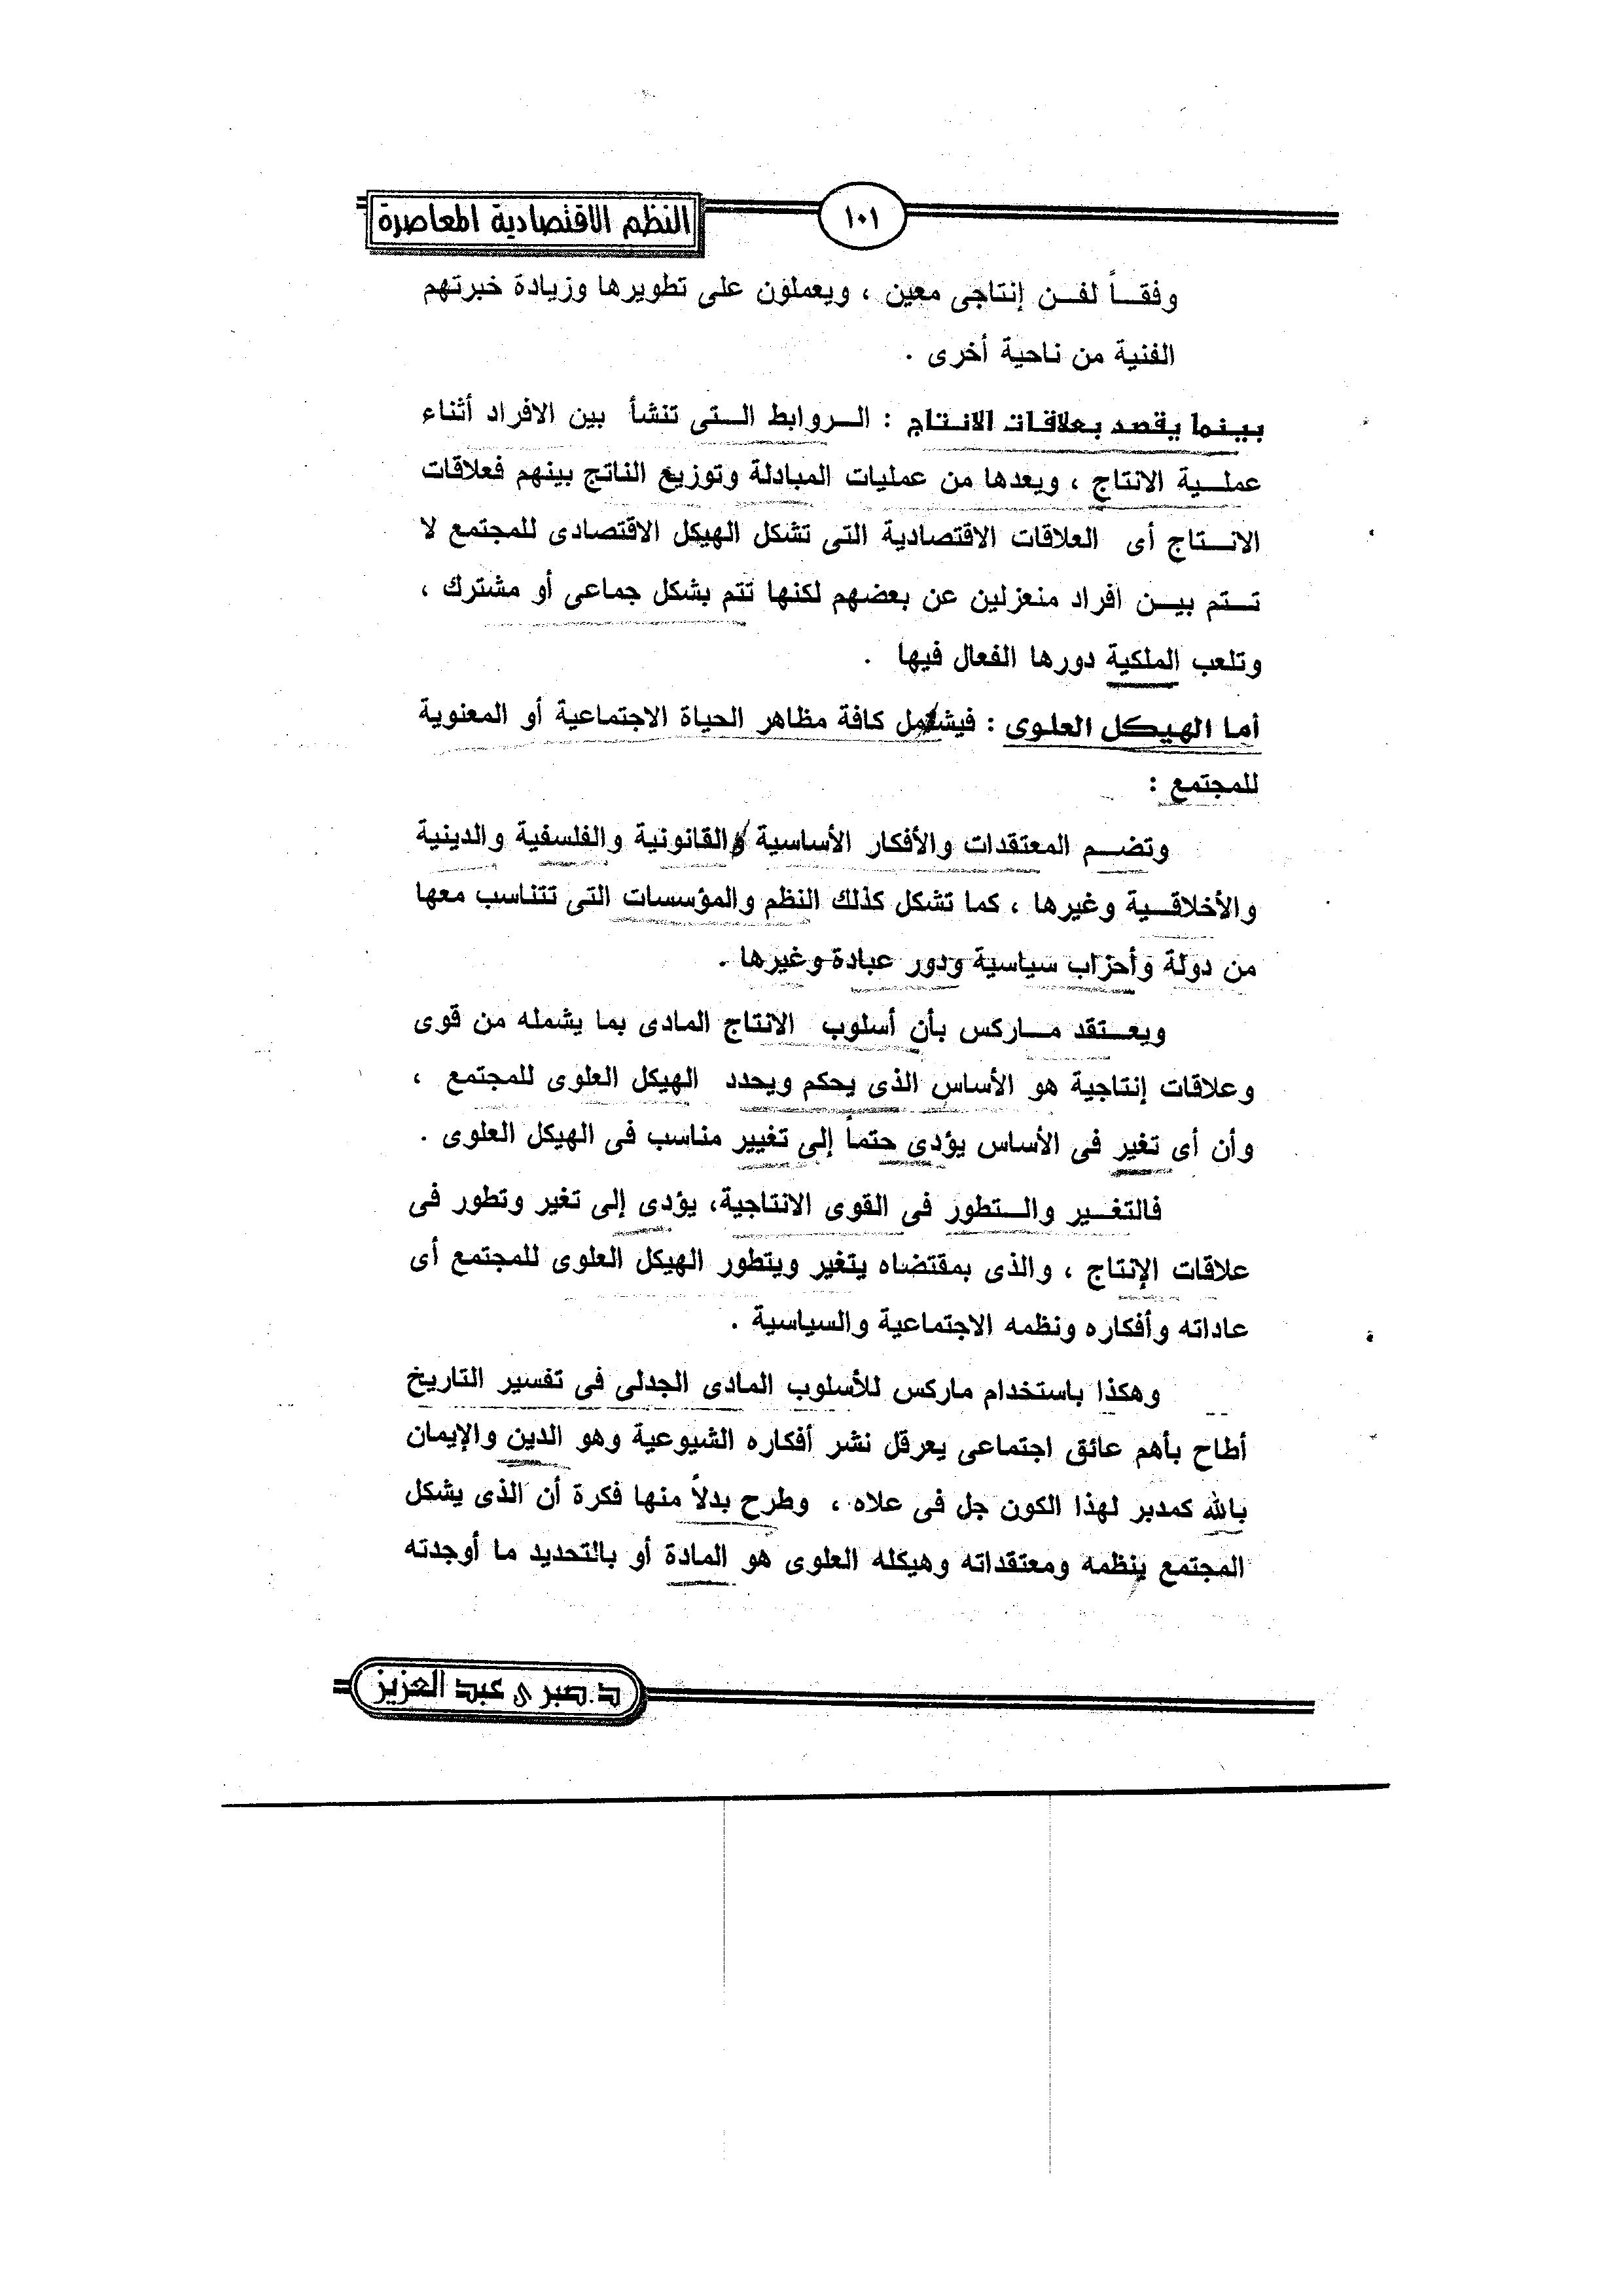 النظم الاقتصادية المعاصرة
١٠١
وفقاً لفن إنتاجى معين ، ويعملون على تطويرها وزيادة خبرتهم
الفنية من ناحية أخرى .
بينما يقصد بعلاقات الانتاج : الروابط التى تنشأ بين الافراد أثناء
عملية الانتاج ، وبعدها من عمليات المبادلة وتوزيع الناتج بينهم فعلاقات
الانتاج أى العلاقات الاقتصادية التى تشكل الهيكل الاقتصادى للمجتمع لا
تتم بين افراد منعزلين عن بعضهم لكنها تتم بشكل جماعى أو مشترك ،
وتلعب الملكية دورها الفعال فيها .
أما الهيكل العلوى : فيشمل كافة مظاهر الحياة الاجتماعية أو المعنوية
للمجتمع :
وتضم المعتقدات والأفكار الأساسية والقانونية والفلسفية والدينية
والأخلاقية وغيرها ، كما تشكل كذلك النظم والمؤسسات التى تتناسب معها
من دولة وأحزاب سياسية ودور عبادة وغيرها .
ويعتقد ماركس بأن أسلوب الانتاج المادى بما يشمله من قوى
وعلاقات إنتاجية هو الأساس الذى يحكم ويحدد الهيكل العلوى للمجتمع ،
وأن أى تغير فى الأساس يؤدى حتماً إلى تغيير مناسب فى الهيكل العلوى .
فالتغير والتطور فى القوى الانتاجية، يؤدى إلى تغير وتطور فى
علاقات الإنتاج ، والذى بمقتضاه يتغير ويتطور الهيكل العلوى للمجتمع أى
عاداته وأفكاره ونظمه الاجتماعية والسياسية .
وهكذا باستخدام ماركس للأسلوب المادى الجدلى فى تفسير التاريخ
أطاح بأهم عائق اجتماعى يعرقل نشر أفكاره الشيوعية وهو الدين والإيمان
بالله كمدبر لهذا الكون جل فى علاه ، وطرح بدلاً منها فكرة أن الذى يشكل
المجتمع بنظمه ومعتقداته وهيكله العلوى هو المادة أو بالتحديد ما أوجدته
د.صبرى عبد العزيز